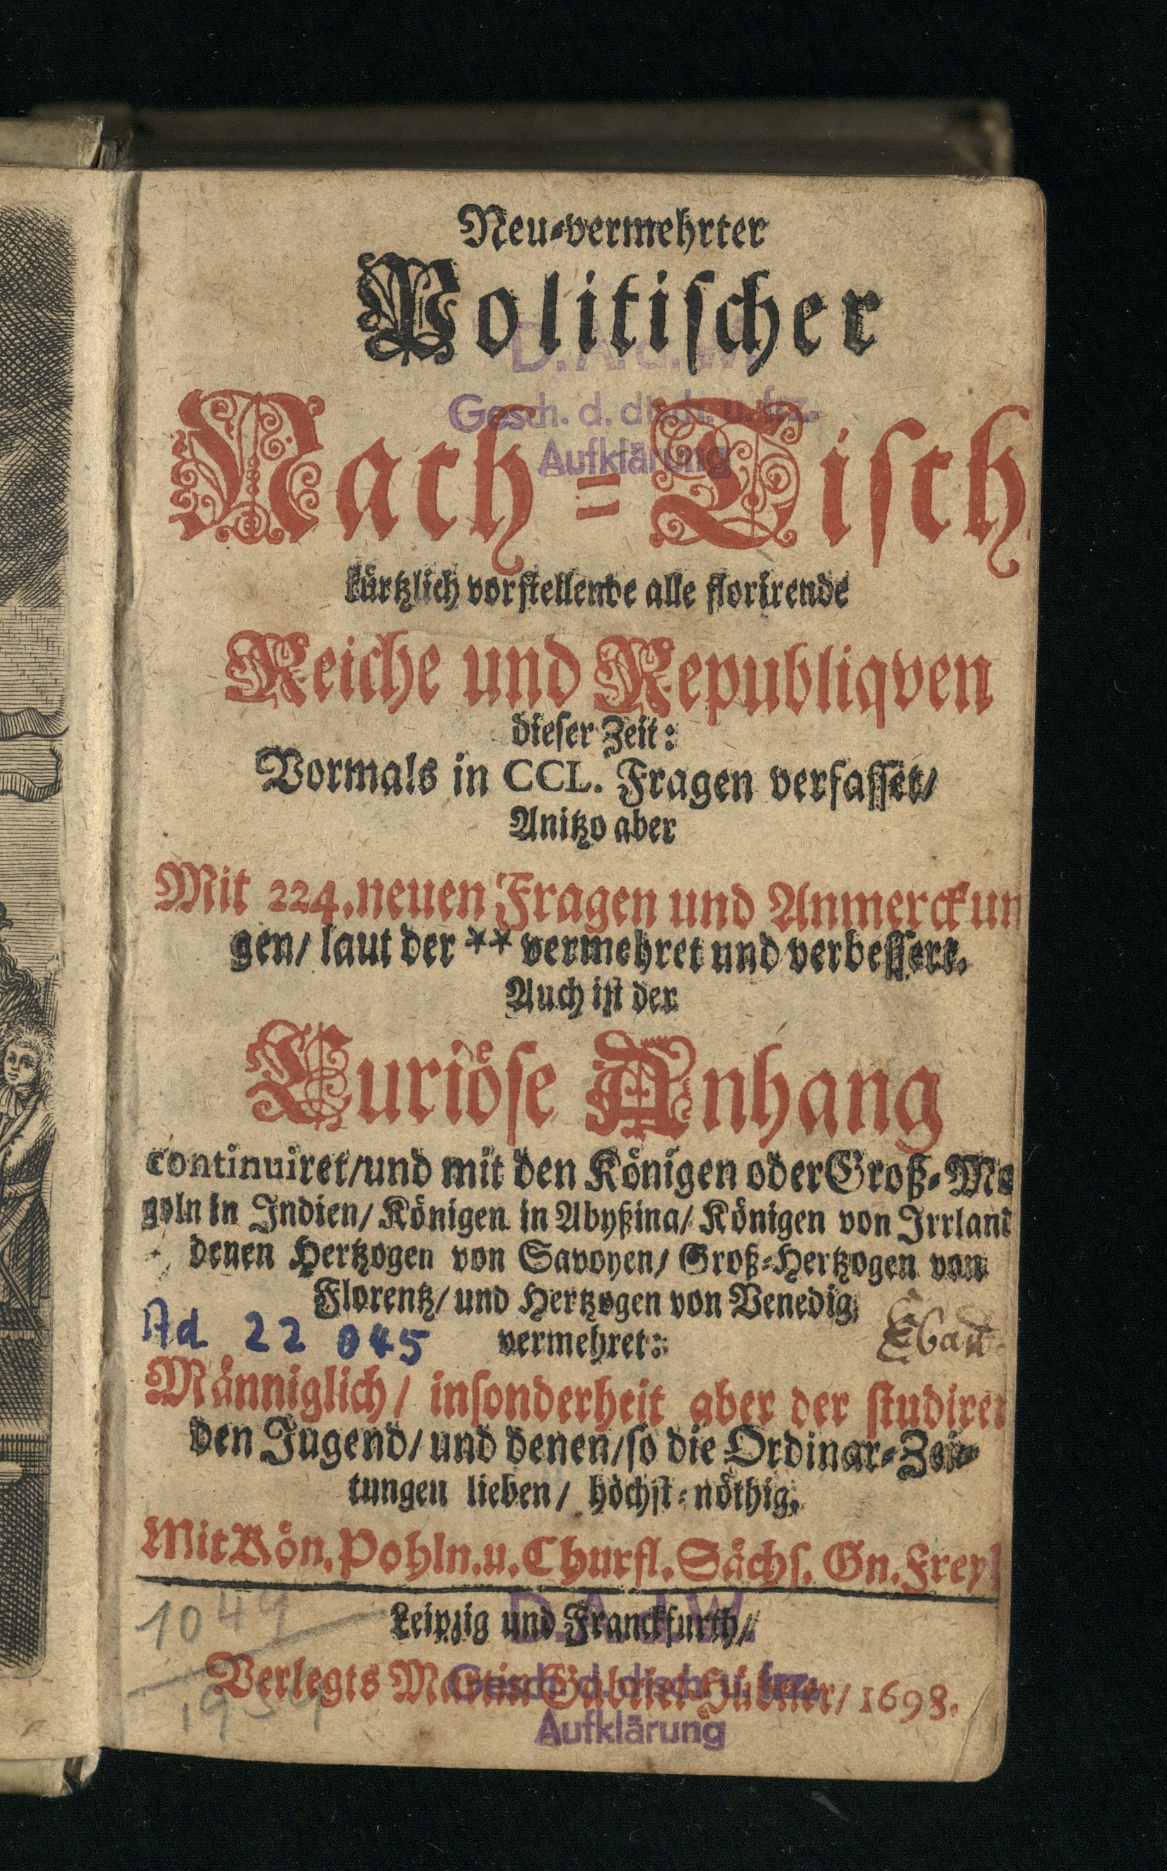 Neu-vermehrter
Politischer
D.A.d.W.
Gesch. d. dtsch. u. frz.
Aufklärung
Nach-Tisch
kürtzlich vorstellende alle florirende
Reiche und Republiqven
dieser Zeit:
Vormals in CCL. Fragen verfasset/
Anitzo aber
Mit 224. neuen Fragen und Anmerckun
gen/ laut der ** vermehret und verbessert.
Auch ist der
Curiöse Anhang
continuiret/und mit den Königen oder Groß-Mo
goln in Indien/ Königen in Abyßina/ Königen von Irrland
denen Hertzogen von Savoyen/ Groß-Hertzogen von
Florentz/ und Hertzogen von Venedig
vermehret:
Ad 22 045
Männiglich/ insonderheit aber der studiren
den Jugend/ und denen/ so die Ordinar-Zei-
tungen lieben/ höchst-nöthig.
Mit Kön. Pohln. u. Churfl. Sächs. Gn. Freyh
1049
Leipzig und Franckfurth/
D.A.d.W.
Verlegts Martin Gabriel Hübner/ 1698.
Gesch. d. dtsch. u. frz.
Aufklärung